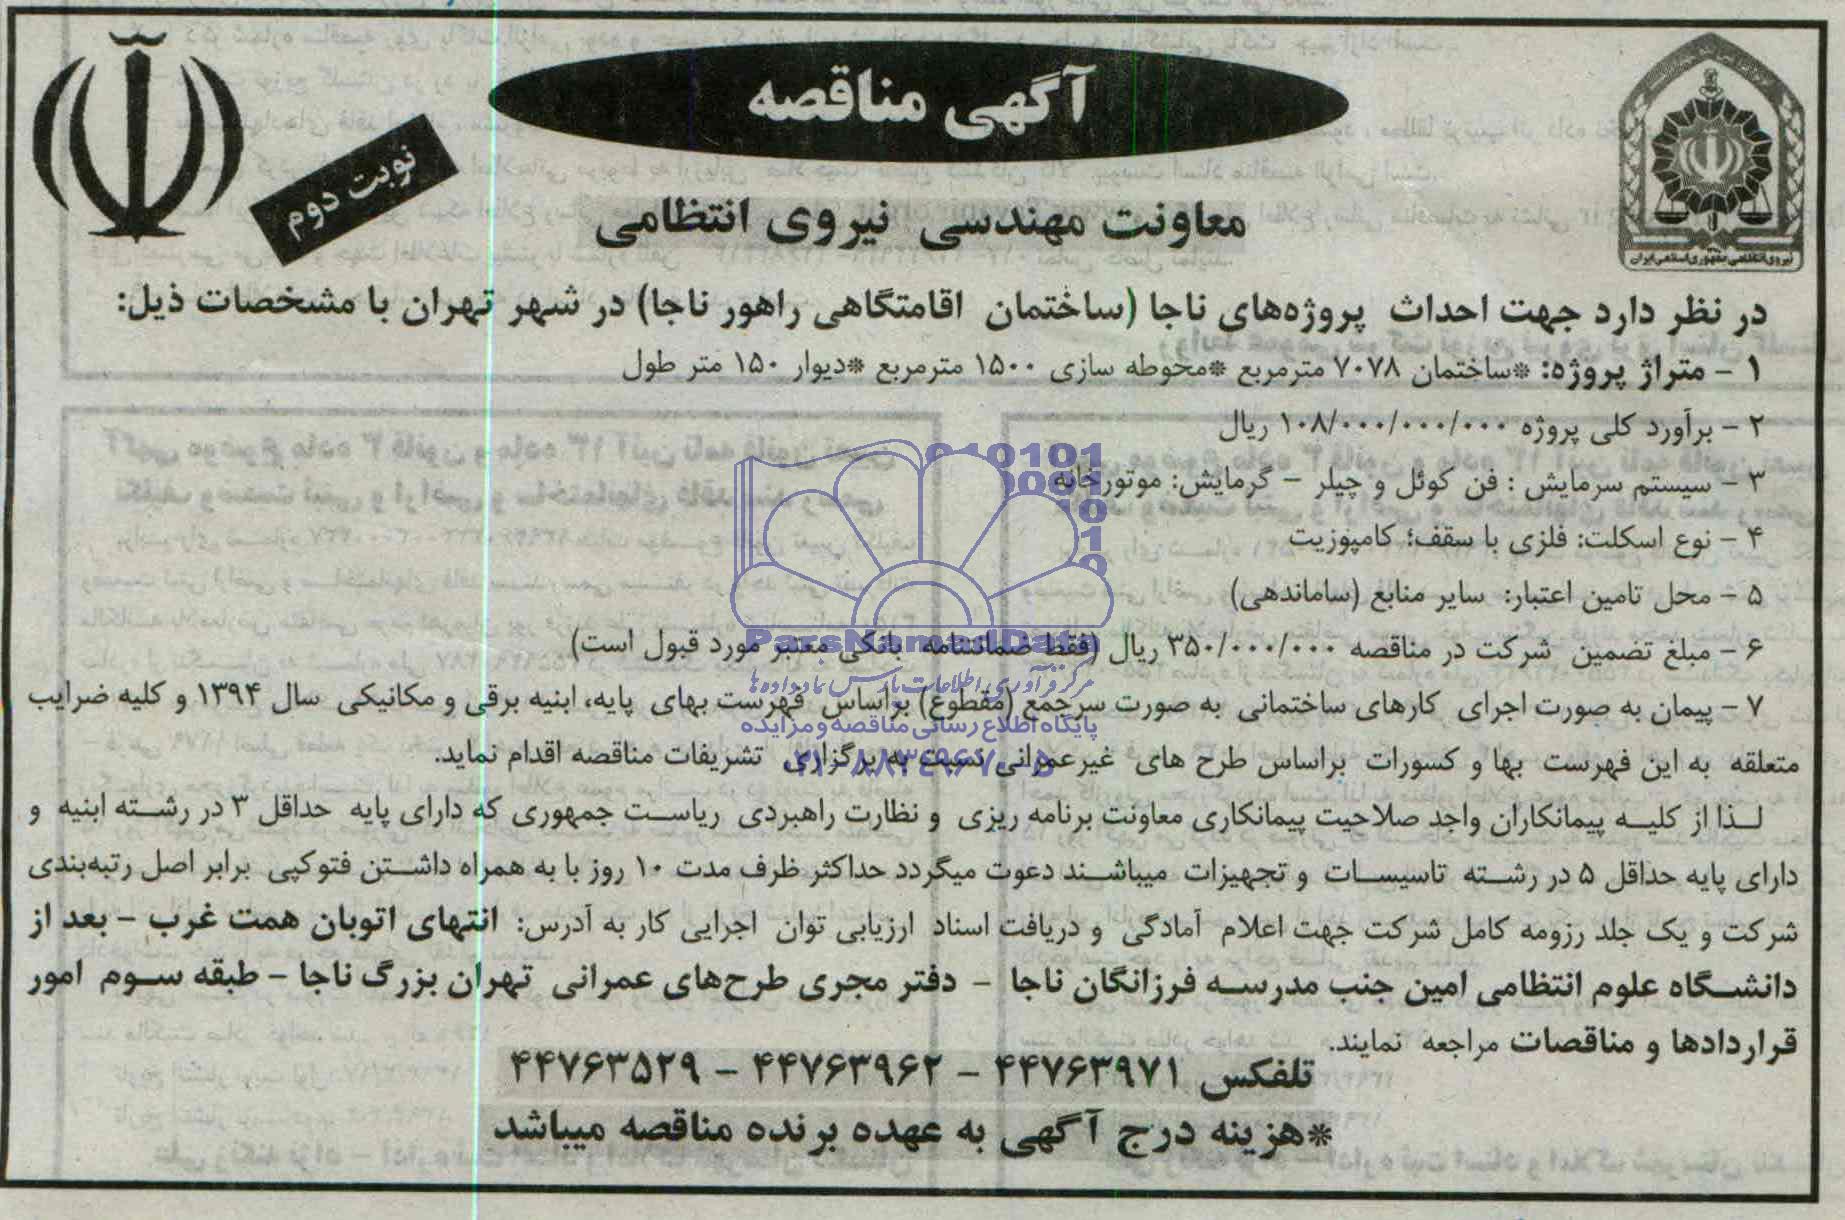 آگهی مناقصه
نوبت دوم
نیروی انتظامی جمهوری اسلامی ایران
معاونت مهندسی نیروی انتظامی
در نظر دارد جهت احداث پروژه‌های ناجا (ساختمان اقامتگاهی راهور ناجا) در شهر تهران با مشخصات ذیل:
۱ - متراژ پروژه: *ساختمان ۷۰۷۸ مترمربع *محوطه سازی ۱۵۰۰ مترمربع *دیوار ۱۵۰ متر طول
۲ - برآورد کلی پروژه ۱۰۸/۰۰۰/۰۰۰/۰۰۰ ریال
۳ - سیستم سرمایش : فن کوئل و چیلر - گرمایش: موتورخانه
۴ - نوع اسکلت: فلزی با سقف؛ کامپوزیت
۵ - محل تامین اعتبار: سایر منابع (ساماندهی)
۶ - مبلغ تضمین شرکت در مناقصه ۳۵۰/۰۰۰/۰۰۰ ریال (فقط ضمانتنامه بانکی معتبر مورد قبول است)
۷ - پیمان به صورت اجرای کارهای ساختمانی به صورت سرجمع (مقطوع) براساس فهرست بهای پایه، ابنیه برقی و مکانیکی سال ۱۳۹۴ و کلیه ضرایب
متعلقه به این فهرست بها و کسورات براساس طرح های غیرعمرانی نسبت به برگزاری تشریفات مناقصه اقدام نماید.
لذا از کلیه پیمانکاران واجد صلاحیت پیمانکاری معاونت برنامه ریزی و نظارت راهبردی ریاست جمهوری که دارای پایه حداقل ۳ در رشته ابنیه و
دارای پایه حداقل ۵ در رشته تاسیسات و تجهیزات میباشند دعوت میگردد حداکثر ظرف مدت ۱۰ روز با به همراه داشتن فتوکپی برابر اصل رتبه‌بندی
شرکت و یک جلد رزومه کامل شرکت جهت اعلام آمادگی و دریافت اسناد ارزیابی توان اجرایی کار به آدرس: انتهای اتوبان همت غرب - بعد از
دانشگاه علوم انتظامی امین جنب مدرسه فرزانگان ناجا - دفتر مجری طرح‌های عمرانی تهران بزرگ ناجا - طبقه سوم امور
قراردادها و مناقصات مراجعه نمایند.
تلفکس ۴۴۷۶۳۹۷۱ - ۴۴۷۶۳۹۶۲ - ۴۴۷۶۳۵۲۹
*هزینه درج آگهی به عهده برنده مناقصه میباشد
ParsNamadData
مرکز فرآوری اطلاعات پارس نماد داده ها
پایگاه اطلاع رسانی مناقصه و مزایده